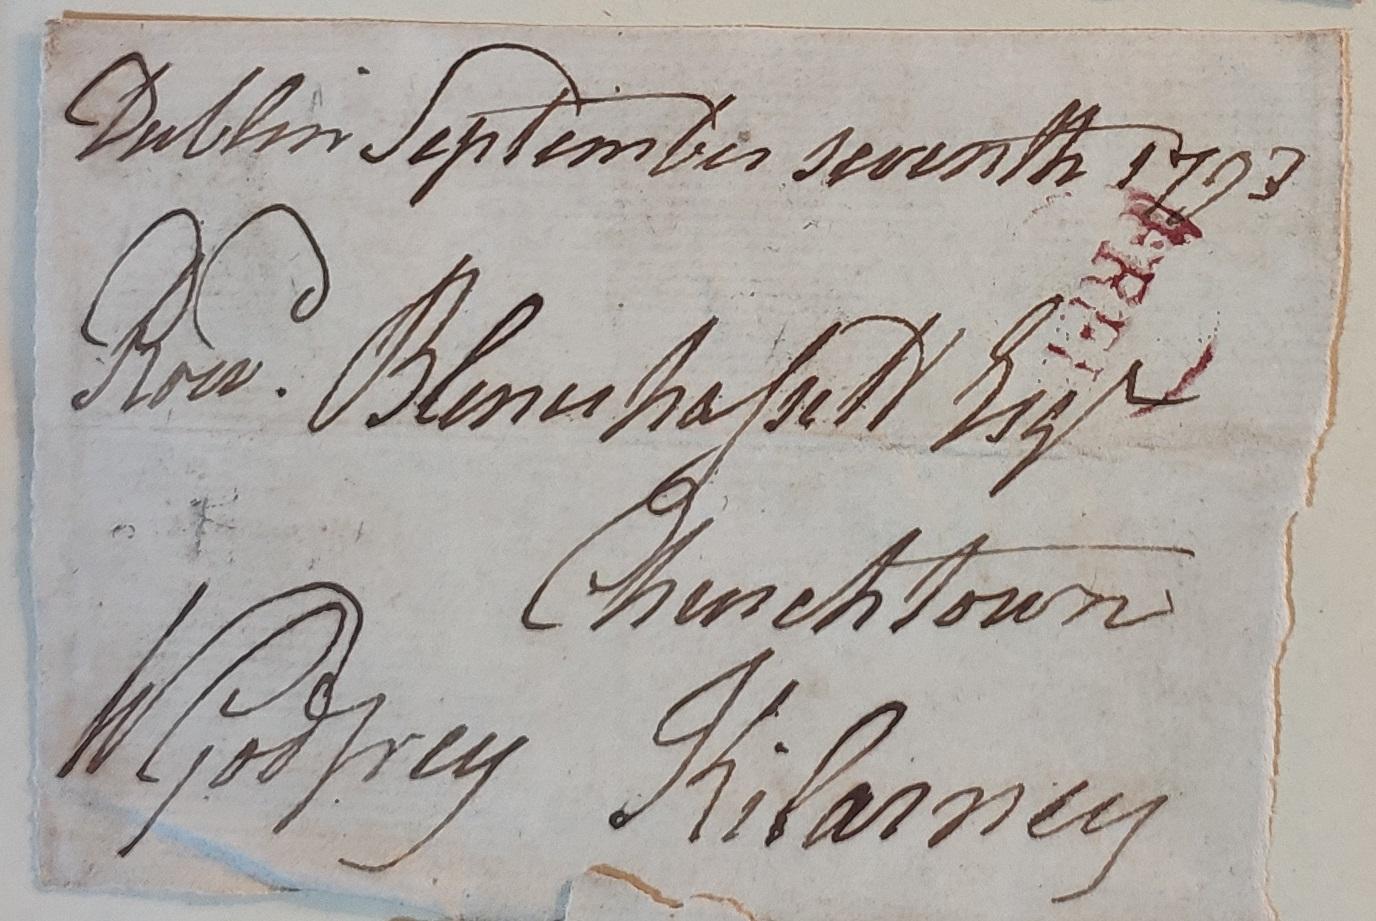 Dublin September seventh 1793
FREE
Row. Blennerhassett Esqr
Churchtown
W Godfrey
Kilarney